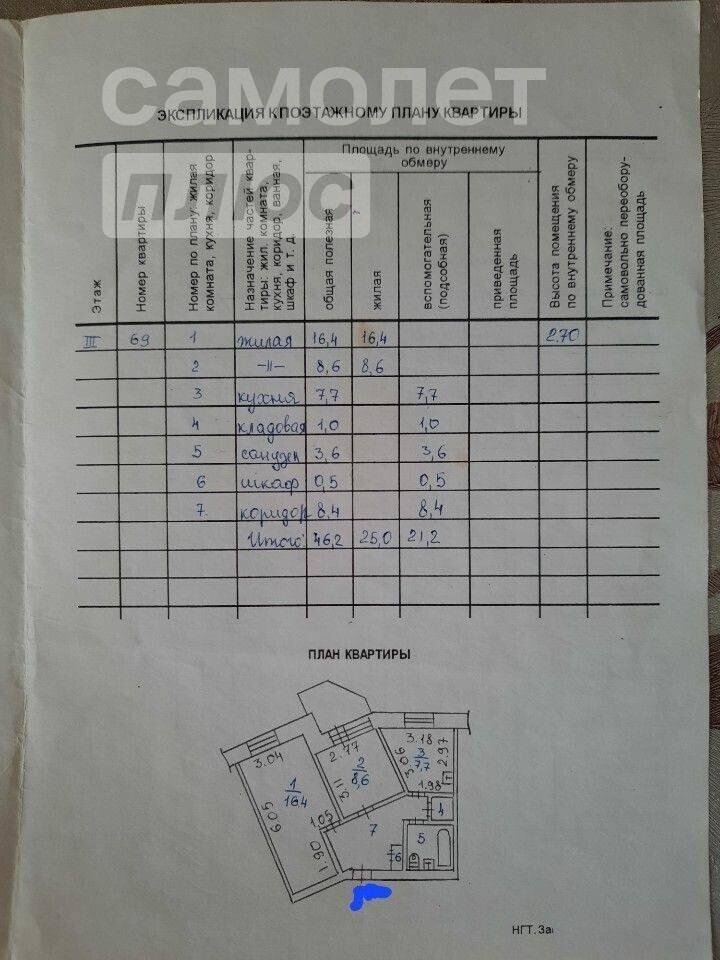 самолет
плюс
ЭКСПЛИКАЦИЯ К ПОЭТАЖНОМУ ПЛАНУ КВАРТИРЫ
Этаж
Номер квартиры
Номер по плану: жилая
комната, кухня, коридор
Назначение частей квар-
тиры: жил. комната,
кухня, коридор, ванная,
шкаф и т. д.
Площадь по внутреннему
обмеру
общая полезная
жилая
вспомогательная
(подсобная)
приведенная
площадь
Высота помещения
по внутреннему обмеру
Примечание:
самовольно переобору-
дованная площадь
III 69 1 жилая 16,4 16,4 2.70
2 -11- 8,6 8,6
3 кухня 7,7 7,7
4 кладовая 1,0 1,0
5 санузел 3,6 3,6
6 шкаф 0,5 0,5
7. коридор 8,4 8,4
Итого: 46,2 25,0 21,2
ПЛАН КВАРТИРЫ
3.04
1
16.4
6.05
1.05
1.90
2.77
2
8,6
3.11
3.18
3
7,7
3.06
2.97
1.98
4
7
5
6
НГТ. За